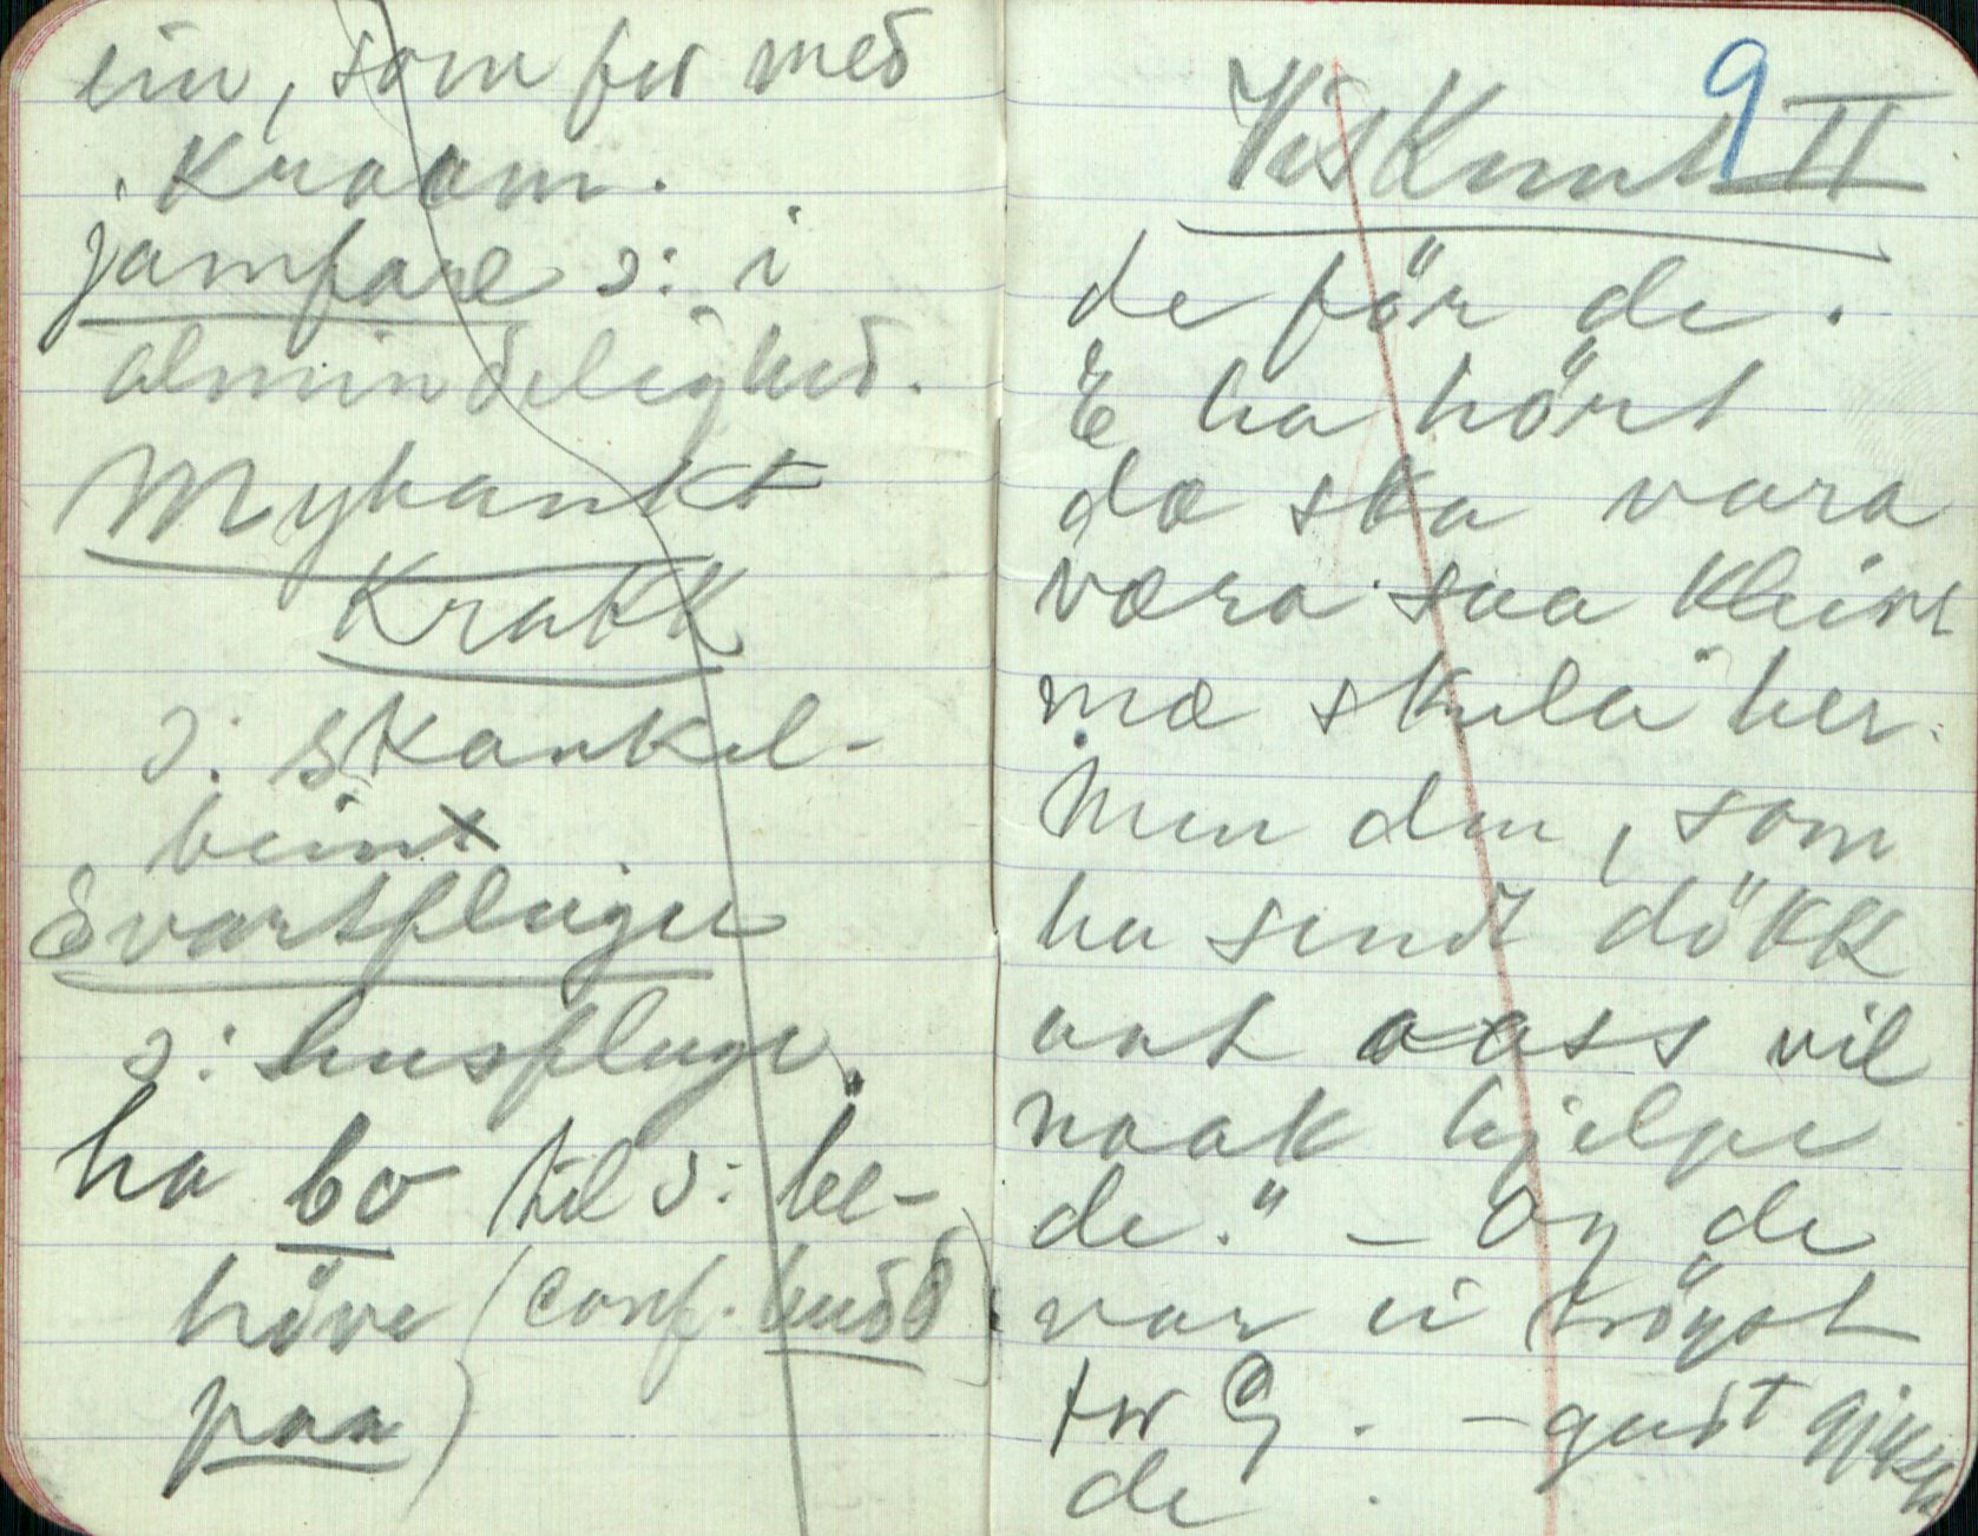 ein, som for med
Kraam.
jamfare ɔ: i
almindelighed.
Myhankt
Krakk
ɔ: skankel-
beint
Svartfluger
ɔ: husfluge.
ha bo til ɔ: be-
höve (conf. budd
paa)
9
VisKnut II
de för de.
E ha hört
dæ ska vara
væra saa kleint
mæ skula her.
Men den, som
ha sendt dökk
aat oass vil
naak hjelpe
de." – Og de
var ei tröyst
for G. – gudt gjikk
de